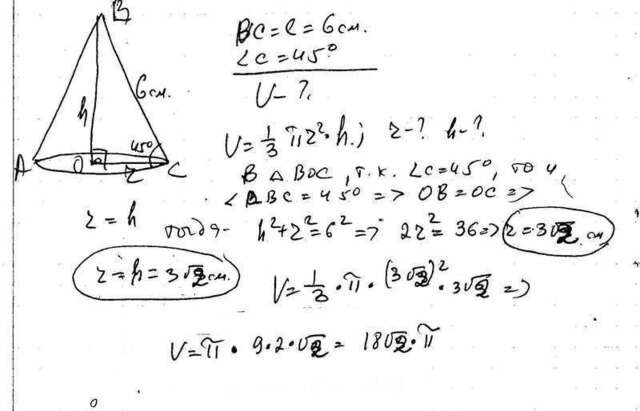 B
BC = l = 6 см.
∠C = 45°
V - ?
6 см.
h
45°
V = 1/3 πr²·h; r - ? h - ?
A O r C
В △ BOC, т.к. ∠C = 45°, то и
∠OBC = 45° => OB = OC =>
r = h тогда - h² + r² = 6² => 2r² = 36 => r = 3√2 см
r = h = 3√2 см.
V = 1/3 · π · (3√2)² · 3√2 =>
V = π · 9 · 2 · √2 = 18√2 · π